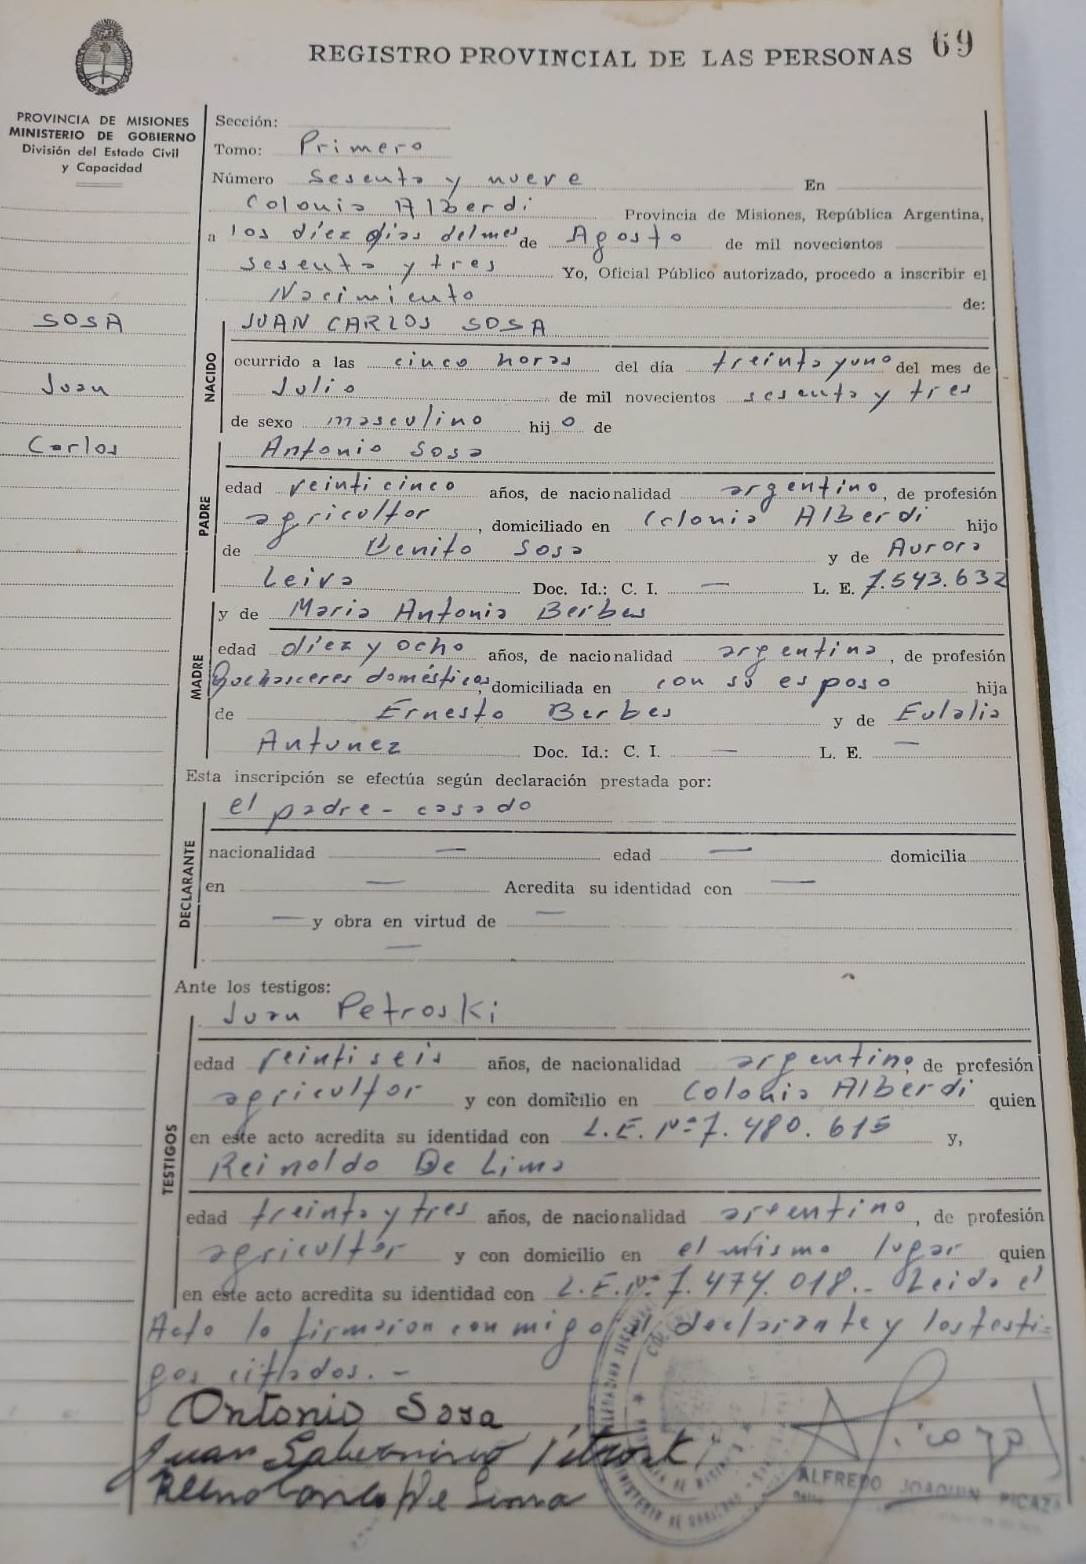 69
REGISTRO PROVINCIAL DE LAS PERSONAS
PROVINCIA DE MISIONES
MINISTERIO DE GOBIERNO
División del Estado Civil
y Capacidad
Sección:
Tomo: Primero
Número Sesenta y nueve En
Colonia Alberdi Provincia de Misiones, República Argentina,
a los diez dias del mes de Agosto de mil novecientos
sesenta y tres Yo, Oficial Público autorizado, procedo a inscribir el
Nacimiento de:
SOSA
Juan
Carlos
NACIDO
JUAN CARLOS SOSA
ocurrido a las cinco horas del día treinta y uno del mes de
Julio de mil novecientos sesenta y tres
de sexo masculino hijo de
Antonio Sosa
PADRE
edad veinticinco años, de nacionalidad argentino, de profesión
agricultor, domiciliado en Colonia Alberdi hijo
de Benito Sosa y de Aurora
Leiva Doc. Id.: C. I. — L. E. 7.543.632
y de Maria Antonia Berbes
MADRE
edad diez y ocho años, de nacionalidad argentina, de profesión
Quehaceres domésticos, domiciliada en con su esposo hija
de Ernesto Berbes y de Eulalia
Antunez Doc. Id.: C. I. — L. E. —
Esta inscripción se efectúa según declaración prestada por:
el padre - casado
DECLARANTE
nacionalidad — edad — domicilia
en — Acredita su identidad con —
— y obra en virtud de —
—
Ante los testigos:
Juan Petroski
TESTIGOS
edad veintiseis años, de nacionalidad argentino de profesión
agricultor y con domicilio en Colonia Alberdi quien
en este acto acredita su identidad con L.E. Nº 7.480.615 y,
Reinoldo De Lima
edad treinta y tres años, de nacionalidad argentino, de profesión
agricultor y con domicilio en el mismo lugar quien
en este acto acredita su identidad con L.E. Nº 7.474.018.- Leida el
Acta la firmaron conmigo el declarante y los testi=
gos citados.-
Antonio Sosa
Juan
De Lima
ALFREDO JOAQUIN PICAZA